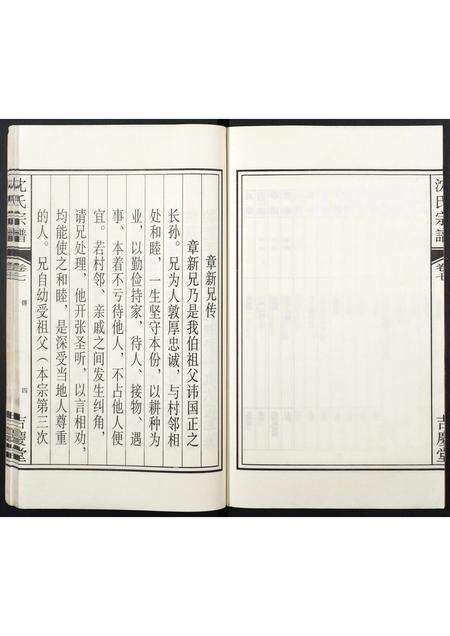 沈氏宗谱
卷七
吉慶堂
章新兄传
章新兄乃是我伯祖父讳国正之
长孙。兄为人敦厚忠诚，与村邻相
处和睦，一生坚守本份，以耕种为
业，以勤俭持家，待人、接物、遇
事、本着不亏待他人，不占他人便
宜。若村邻、亲戚之间发生纠角，
请兄处理，他开张圣听，以言相劝，
均能使之和睦，是深受当地人尊重
的人。兄自幼受祖父（本宗第三次
沈氏宗谱
卷七
传
四
吉慶堂